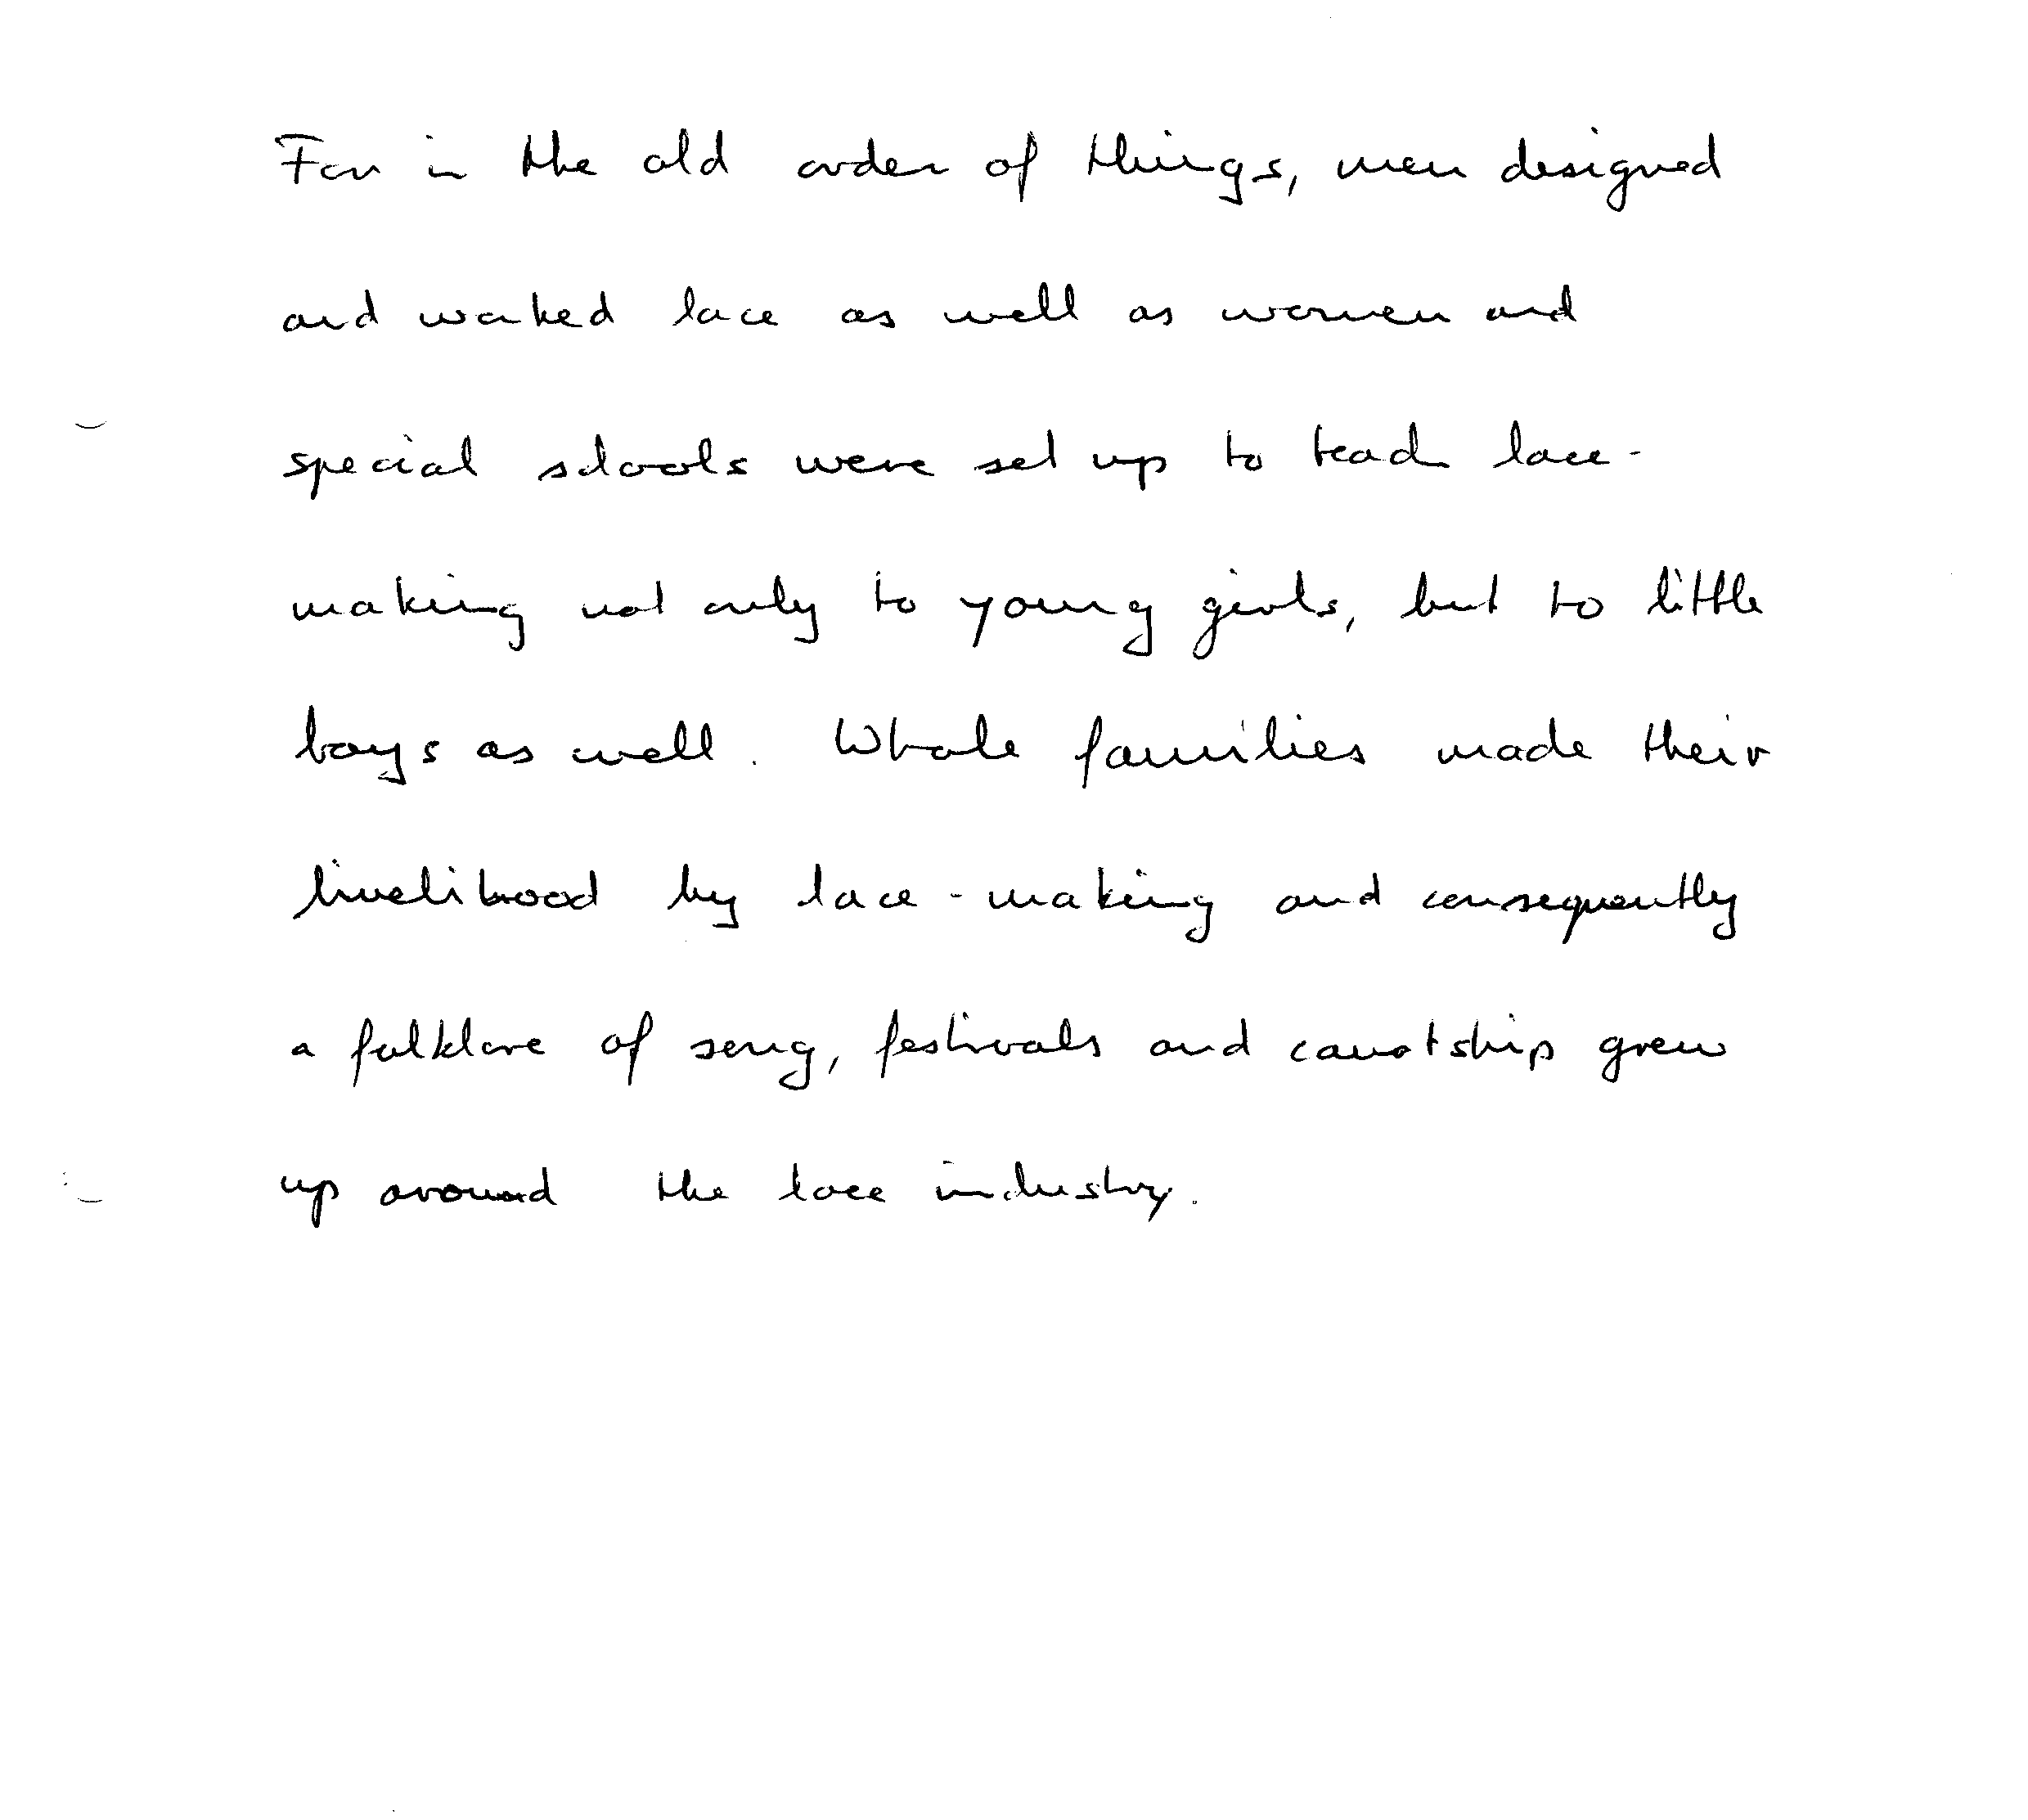 For in the old order of things, men designed
and worked lace as well as women and
special schools were set up to teach lace-
making not only to young girls, but to little
boys as well. Whole families made their
livelihood by lace-making and consequently
a folklore of song, festivals and grew
up around the lace industry.